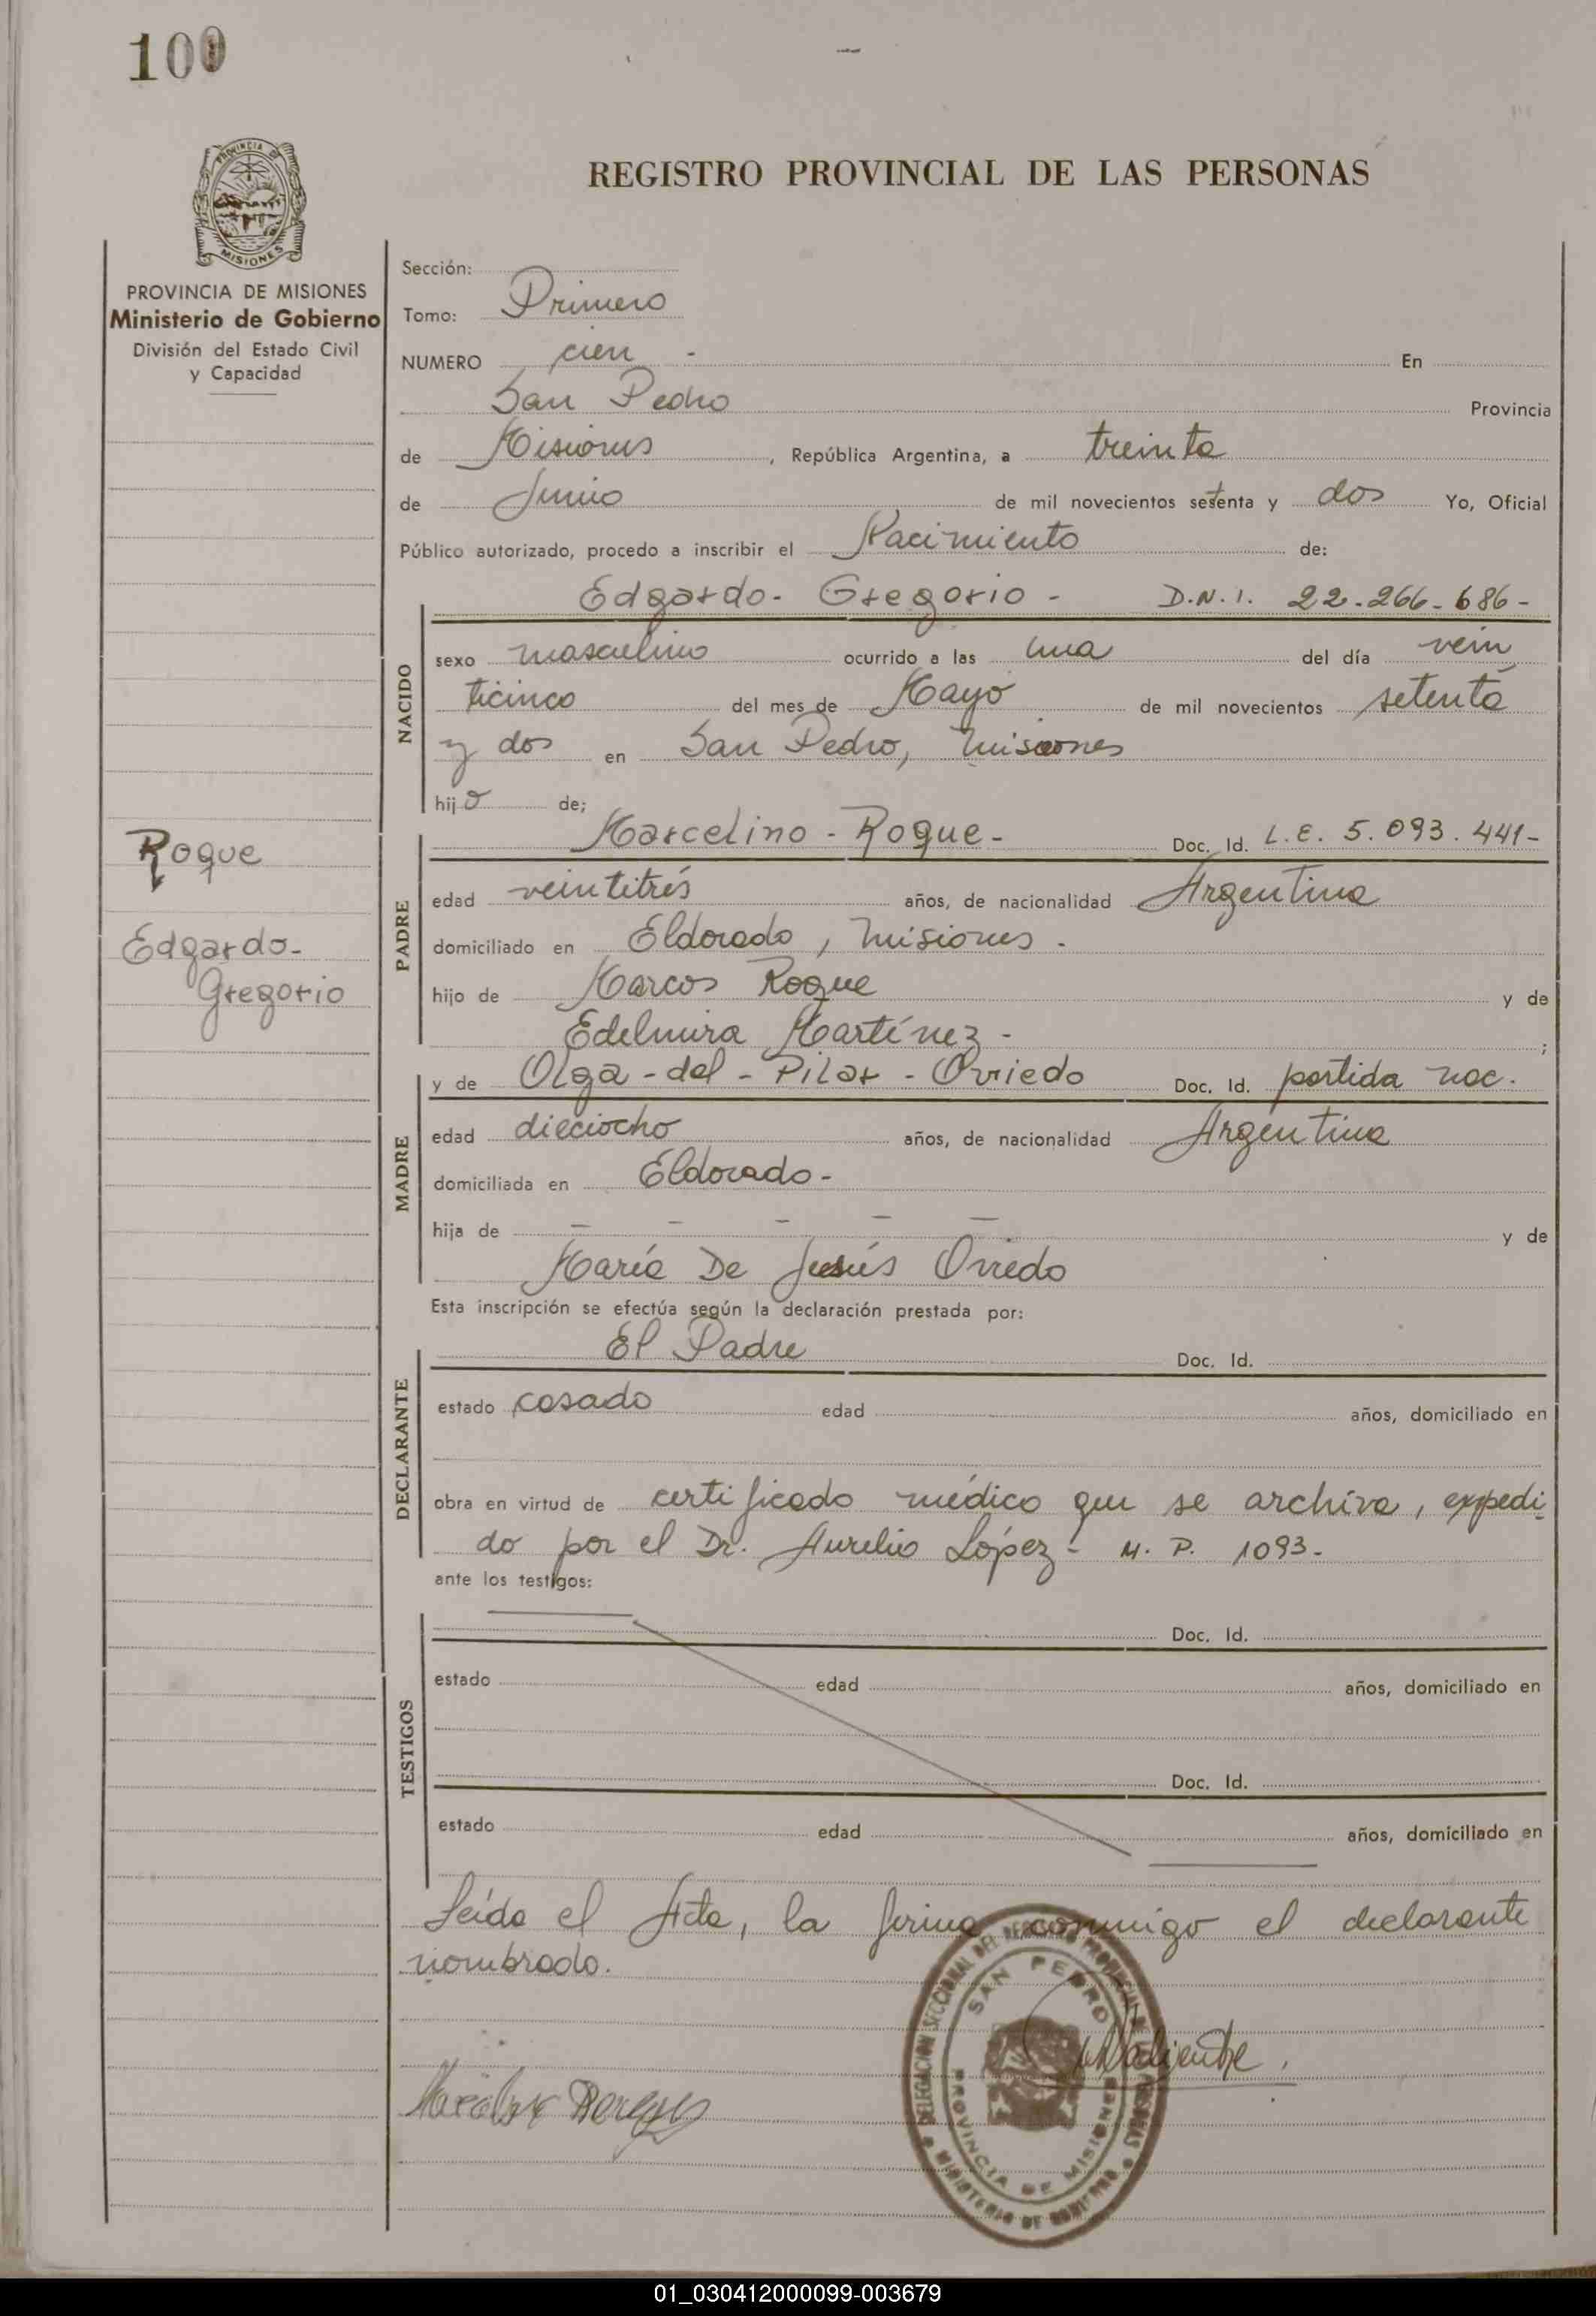 100
PROVINCIA DE
MISIONES
REGISTRO PROVINCIAL DE LAS PERSONAS
PROVINCIA DE MISIONES
Ministerio de Gobierno
División del Estado Civil
y Capacidad
Sección:
Tomo: Primero
NUMERO cien - En
San Pedro Provincia
de Misiones, República Argentina, a treinta
de Junio de mil novecientos setenta y dos Yo, Oficial
Público autorizado, procedo a inscribir el Nacimiento de:
Edgardo - Gregorio - D.N.I. 22.266.686-
NACIDO
sexo masculino ocurrido a las una del día vein
ticinco del mes de Mayo de mil novecientos setenta
y dos en San Pedro, Misiones
hijo de;
Roque
Edgardo-
Gregorio
PADRE
Marcelino - Roque - Doc. Id. L.E. 5.093.441-
edad veintitrés años, de nacionalidad Argentina
domiciliado en Eldorado, Misiones -
hijo de Marcos Roque y de
Edelmira Martínez - ;
MADRE
y de Olga - del - Pilar - Oviedo Doc. Id. partida nac.
edad dieciocho años, de nacionalidad Argentina
domiciliada en Eldorado -
hija de - - - - - y de
María De Jesús Oviedo
Esta inscripción se efectúa según la declaración prestada por:
DECLARANTE
El Padre Doc. Id.
estado casado edad años, domiciliado en
obra en virtud de certificado médico que se archiva, expedi
do por el Dr. Aurelio López - M. P. 1093-
ante los testigos:
TESTIGOS
Doc. Id.
estado edad años, domiciliado en
Doc. Id.
estado edad años, domiciliado en
Leída el Acta, la firma conmigo el declarante
nombrado.
DELEGACION SECCIONAL DEL REGISTRO PROVINCIAL DE LAS PERSONAS
SAN PEDRO
PROVINCIA DE MISIONES
MINISTERIO DE GOBIERNO
01_030412000099-003679